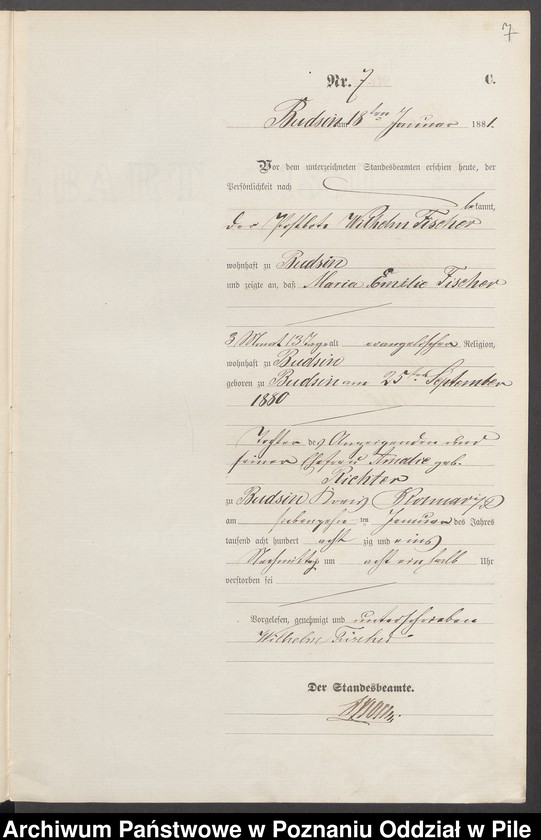 7
Nr. 7 C.
Budsin am 18ten Januar 1881.
Vor dem unterzeichneten Standesbeamten erschien heute, der
Persönlichkeit nach
bekannt,
der Postbote Wilhelm Fischer
wohnhaft zu Budsin
und zeigte an, daß Maria Emilie Fischer
3 Monat 13 Tage alt evangelischer Religion,
wohnhaft zu Budsin
geboren zu Budsin am 25ten September
1880
Tochter des Anzeigenden und
seiner Ehefrau Amalie geb.
Richter
zu Budsin Kreis Kolmar i/P
am siebenzehn ten Januar des Jahres
tausend acht hundert acht zig und eins
Nachmittags um acht ein halb Uhr
verstorben sei
Vorgelesen, genehmigt und unterschrieben
Wilhelm Fischer
Der Standesbeamte.
Archiwum Państwowe w Poznaniu Oddział w Pile